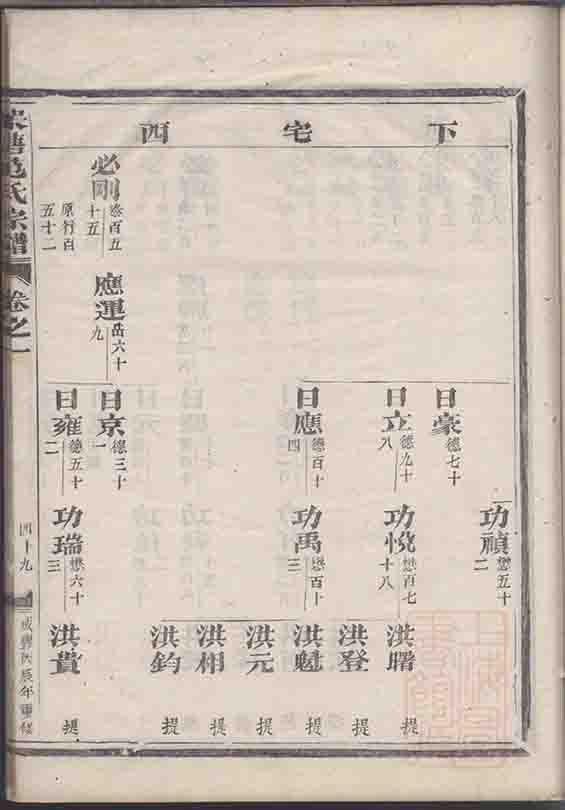 下宅四
功禎 懋五十二
日豪 德七十
日立 德九十八
功悅 懋百七十八
洪曙 提
洪登 提
日應 德百十四
功禹 懋百十三
洪魁 提
洪元 提
洪相 提
洪鈞 提
必剛 懋百五十五
原行百五十二
應運 岳六十九
日京 德三十一
日雍 德五十二
功瑞 懋六十三
洪貴 提
范氏宗譜 卷之一
四十九
咸豐丙辰年重修